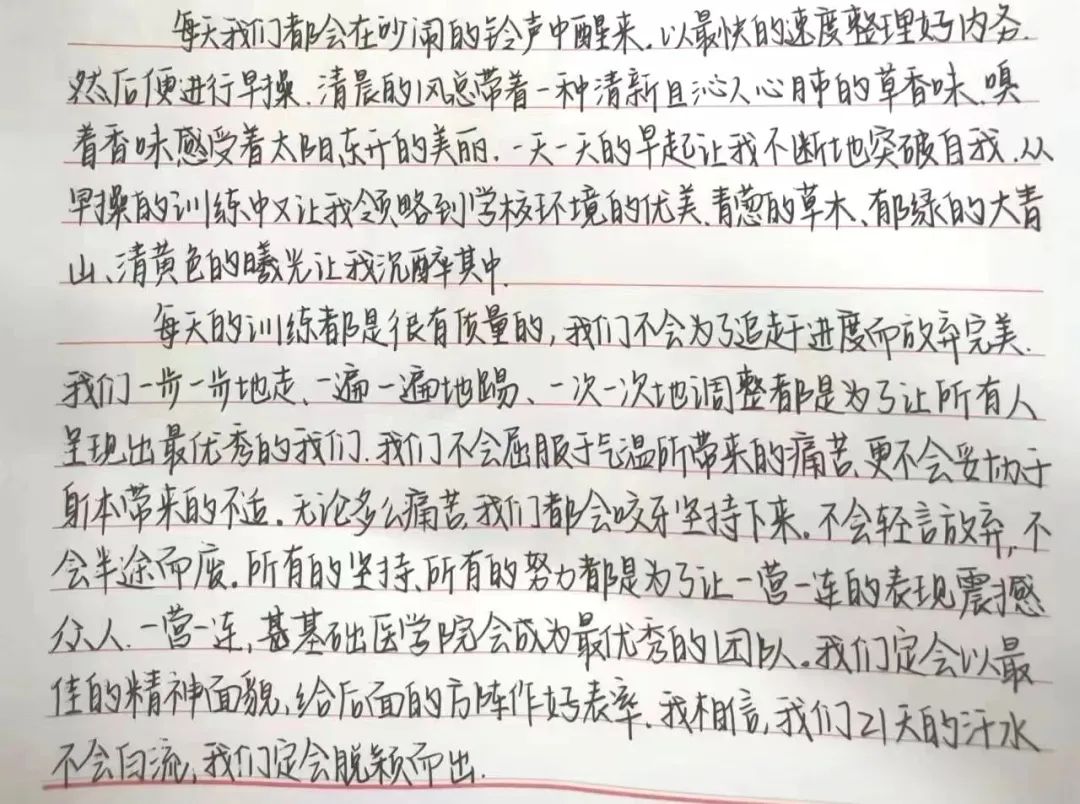 每天我们都会在吵闹的铃声中醒来.以最快的速度整理好内务.
然后便进行早操.清晨的风总带着一种清新且沁人心脾的草香味.嗅
着香味感受着太阳东升的美丽.一天一天的早起让我不断地突破自我.从
早操的训练中又让我领略到学校环境的优美.青葱的草木、郁绿的大青
山、清黄色的曦光让我沉醉其中.
每天的训练都是很有质量的,我们不会为了追赶进度而放弃完美.
我们一步一步地走、一遍一遍地踢、一次一次地调整都是为了让所有人
呈现出最优秀的我们.我们不会屈服于气温所带来的痛苦.更不会妥协于
身体带来的不适。无论多么痛苦,我们都会咬牙坚持下来。不会轻言放弃,不
会半途而废。所有的坚持、所有的努力都是为了让一营一连的表现震撼
众人.一营一连,基础医学院会成为最优秀的团队。我们定会以最
佳的精神面貌,给后面的方阵作好表率.我相信,我们21天的汗水
不会白流,我们定会脱颖而出.